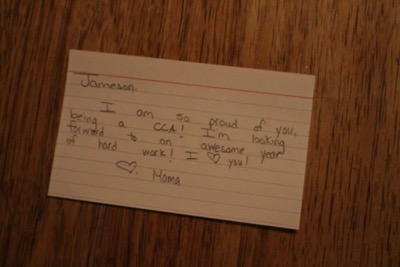 Jameson,
I am so proud of you,
being a CCA! I'm looking
forward to an awesome year
of hard work! I ♡ you!
♡, Mama